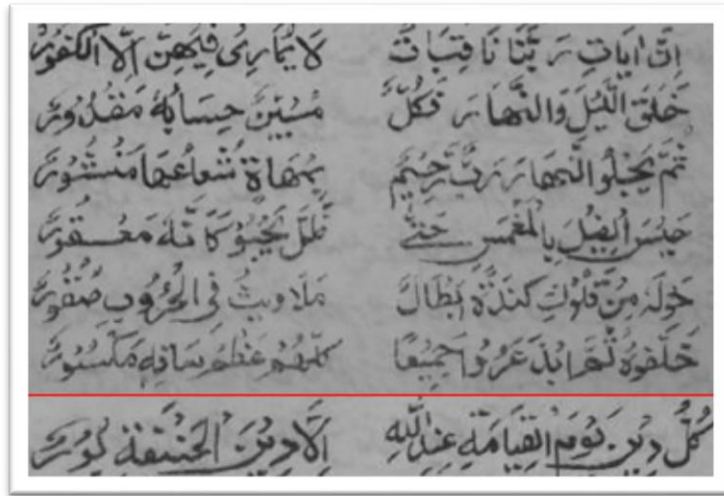 إِنَّ اٰيَاتِ رَبَّنَا ثَاقِبَاتٌ لَا يُمَارِىْ فِيْهِنَّ اِلَّا الْكَفُوْرُ
خَلَقَ الَّيْلَ وَالنَّهَارَ فَكُلٌّ مُسْتَبِيْنٌ حِسَابُهٗ مَقْدُوْرٌ
ثُمَّ يَجْلُوا النَّهَارَ رَبٌّ رَحِيْمٌ بِمَهَاةٍ شُعَاعُهَا مَنْشُوْرٌ
حَبَسَ الْفِيْلَ بِالْمُغَمَّسِ حَتّٰى ظَلَّ يَحْبُوْ كَاَنَّهٗ مَعْقُوْرٌ
حَوْلَهٗ مِنْ مُلُوْكِ كِنْدَةَ اَبْطَالٌ مَلَاوِيْثُ فِى الْحُرُوْبِ صُقُوْرٌ
خَلَّفُوْهُ ثُمَّ ابْذَعَرُّوْا جَمِيْعًا كُلُّهُمْ عَظْمُ سَاقِهٖ مَكْسُوْرٌ
كُلُّ دِيْنٍ يَوْمَ الْقِيَامَةِ عِنْدَ اللّٰهِ اِلَّا دِيْنَ الْحَنِيْفَةِ بُوْرٌ